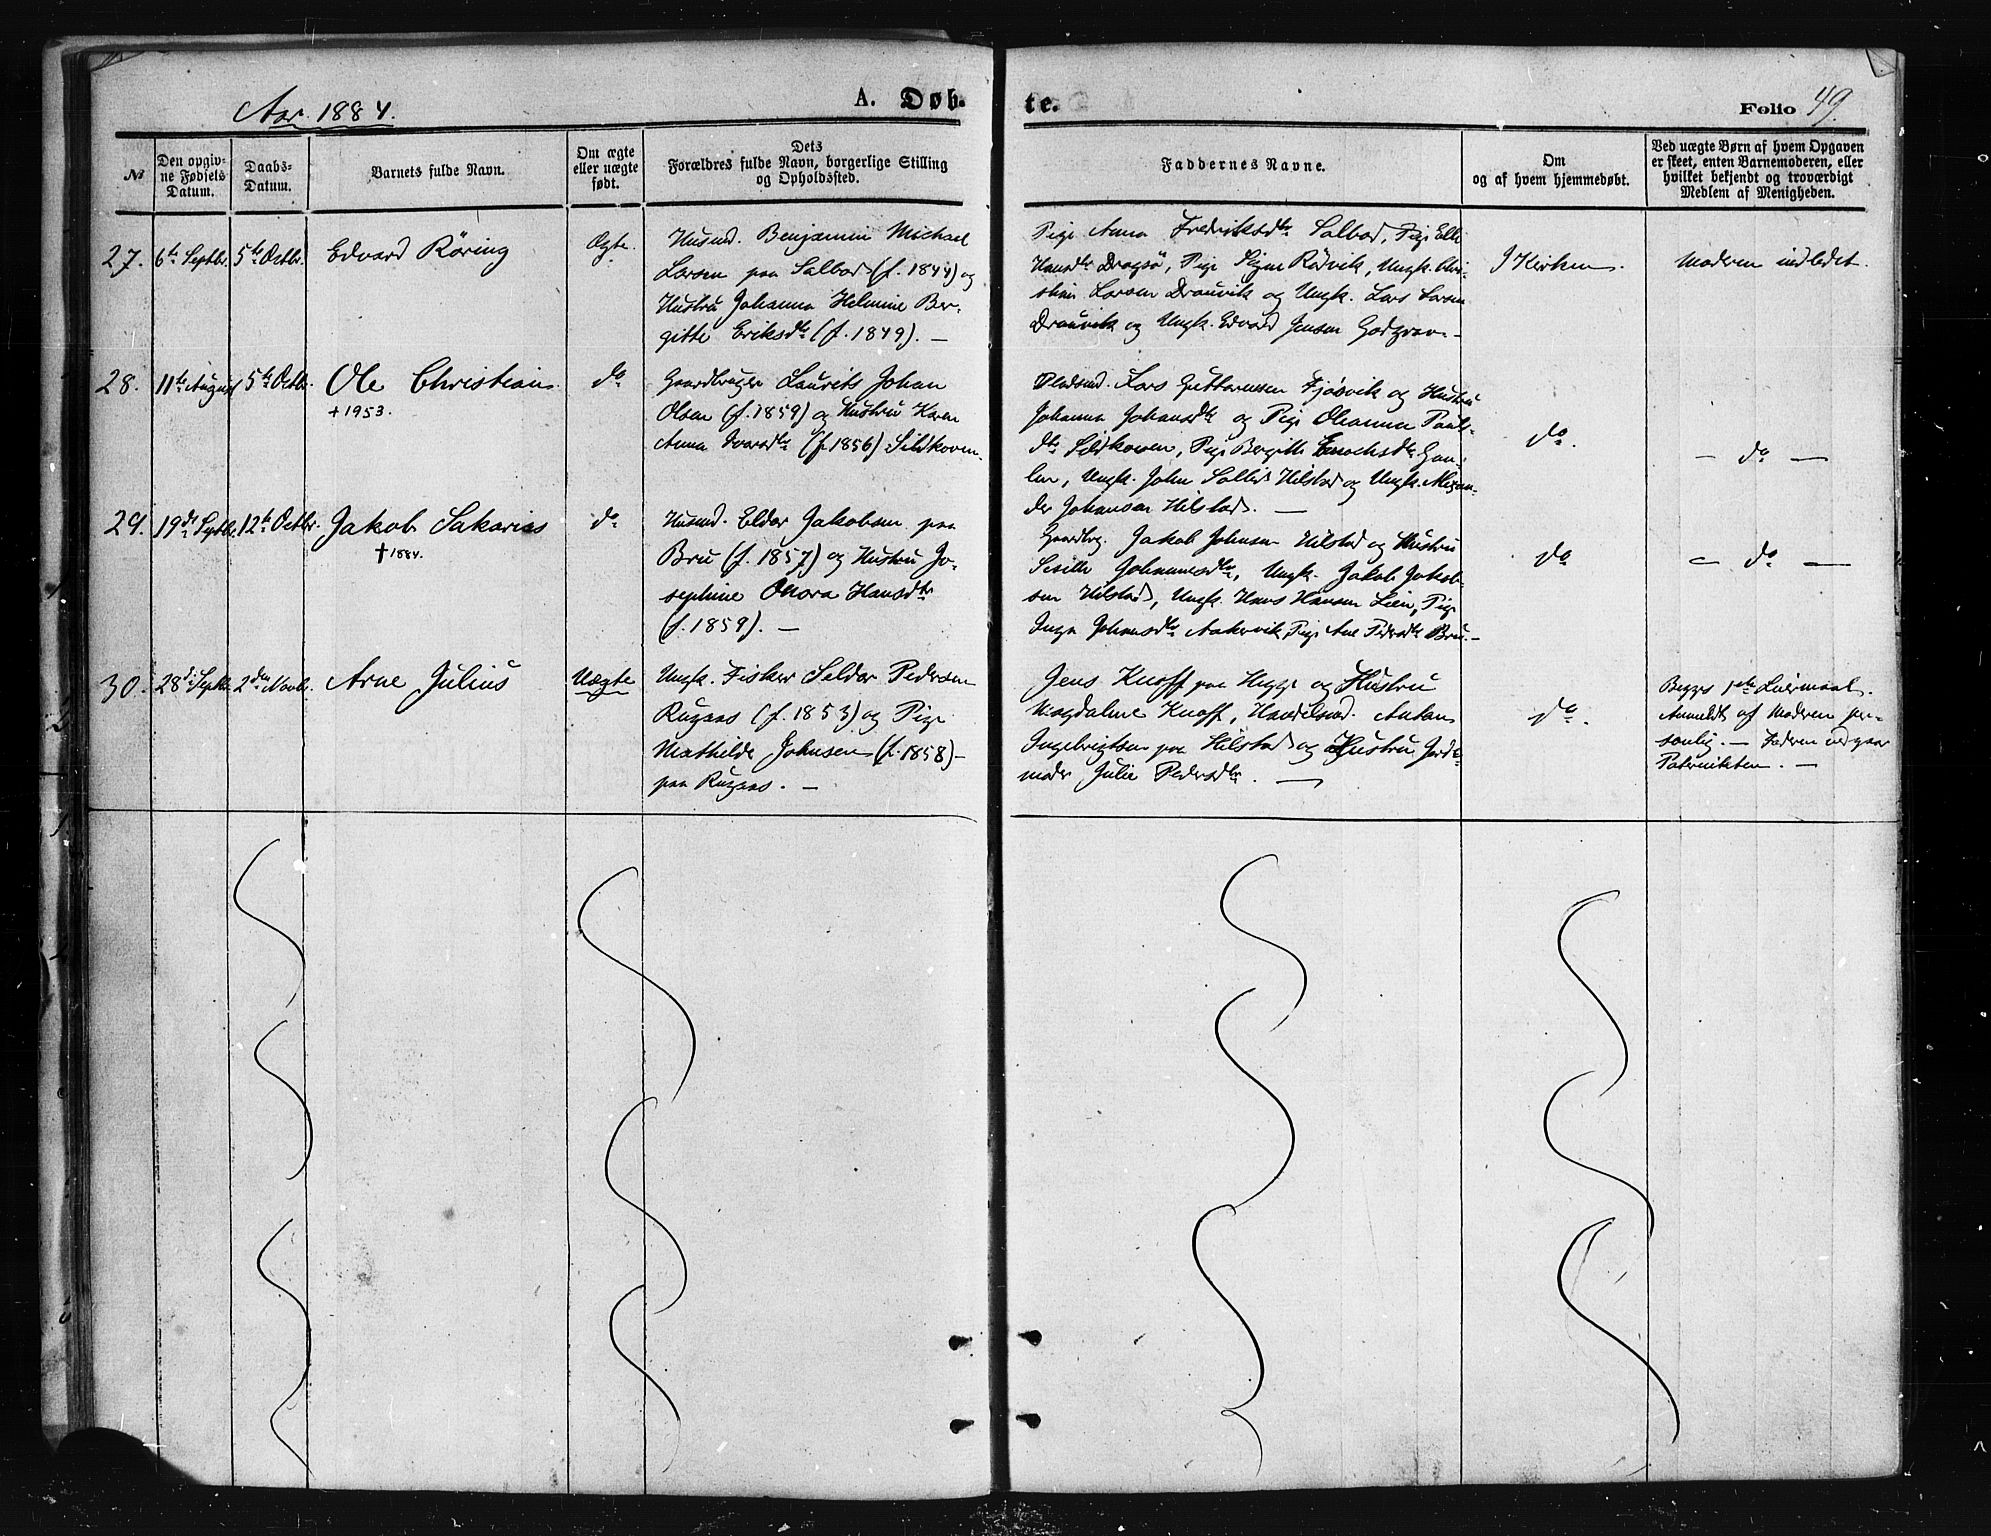 Aar 1884.
A. Døb-
te.
Folio 49.
No
Den opgiv-
ne Fødsels
Datum.
Daabs-
Datum.
Barnets fulde Navn.
Om ægte
eller uægte
født.
Dets
Forældres fulde Navn, borgerlige Stilling
og Opholdssted.
Faddernes Navne.
Om
og af hvem hjemmedøbt.
Ved uægte Børn af hvem Opgaven
er skeet, enten Barnemoderen, eller
hvilket bekjendt og troværdigt
Medlem af Menigheden.
27. 6te Septbr. 5te Octbr. Edvard Röring Ægte.
Husmd. Benjamin Michael
Larsen paa Salbod (f. 1844) og
Hustru Johanna Helmine Ber-
gitte Eriksdtr (f. 1849). —
Pige Anna Fredriksdtr Salbod, Pige Elli
Hansdtr Dragsö, Pige Signe Rödvik, Ungk. Chri-
stian Larsen Drauvik og Ungk. Lars Larsen
Drauvik og Ungk. Edvard Jensen —
I Kirken.
Moderen indledet.
28. 11te August 5te Octbr. Ole Christian do
+1953.
Gaardbruger Laurits Johan
Olsen (f. 1859) og Hustru Karen
Anna Ivarsdtr (f. 1856) Sildkoven.
Pladsmd. Lars Guttormsen Fjøsvik og Hustru
Johanna Johansdtr og Pige Oleanna Pauls-
dtr Sildkoven, Pige Bergitte Enochsdtr
Ungk. John Hilstad og Ungk. Alexan-
der Johansen Hilstad. —
do.
— do —
29. 19de Septbr. 12te Octbr. Jakob Sakarias do
+1884.
Husmd. Eldor Jakobsen paa
Bru (f. 1857) og Hustru Jo-
sephine Hansdtr
(f. 1859). —
Gaardbrg. Jakob Johnsen Hilstad og Hustru
Johannesdtr, Ungk. Jakob Jakob-
sen Hilstad, Ungk. Hans Hansen Lien, Pige
Inga Johansdtr Aakervik, Pige Ane Pedersdtr Bru. —
do
— do —
30. 28de Septbr. 2den Novbr. Arne Julius Uægte
Ungk. Fisker Seldor Pedersen
Rugaas (f. 1853) og Pige
Mathilde Johnsen (f. 1858) —
paa Rugaas. —
Jens Knoff paa og Hustru
Magdalene Knoff, Handelsmd. Anton
Ingebrigtsen paa Hilstad og Hustru, Jorde-
moder Julie Pedersdtr. —
do.
Begges 1ste Leiermaal.
Anmeldt af Moderen per-
sonlig. — Faderen vedgaar
Paterniteten. —